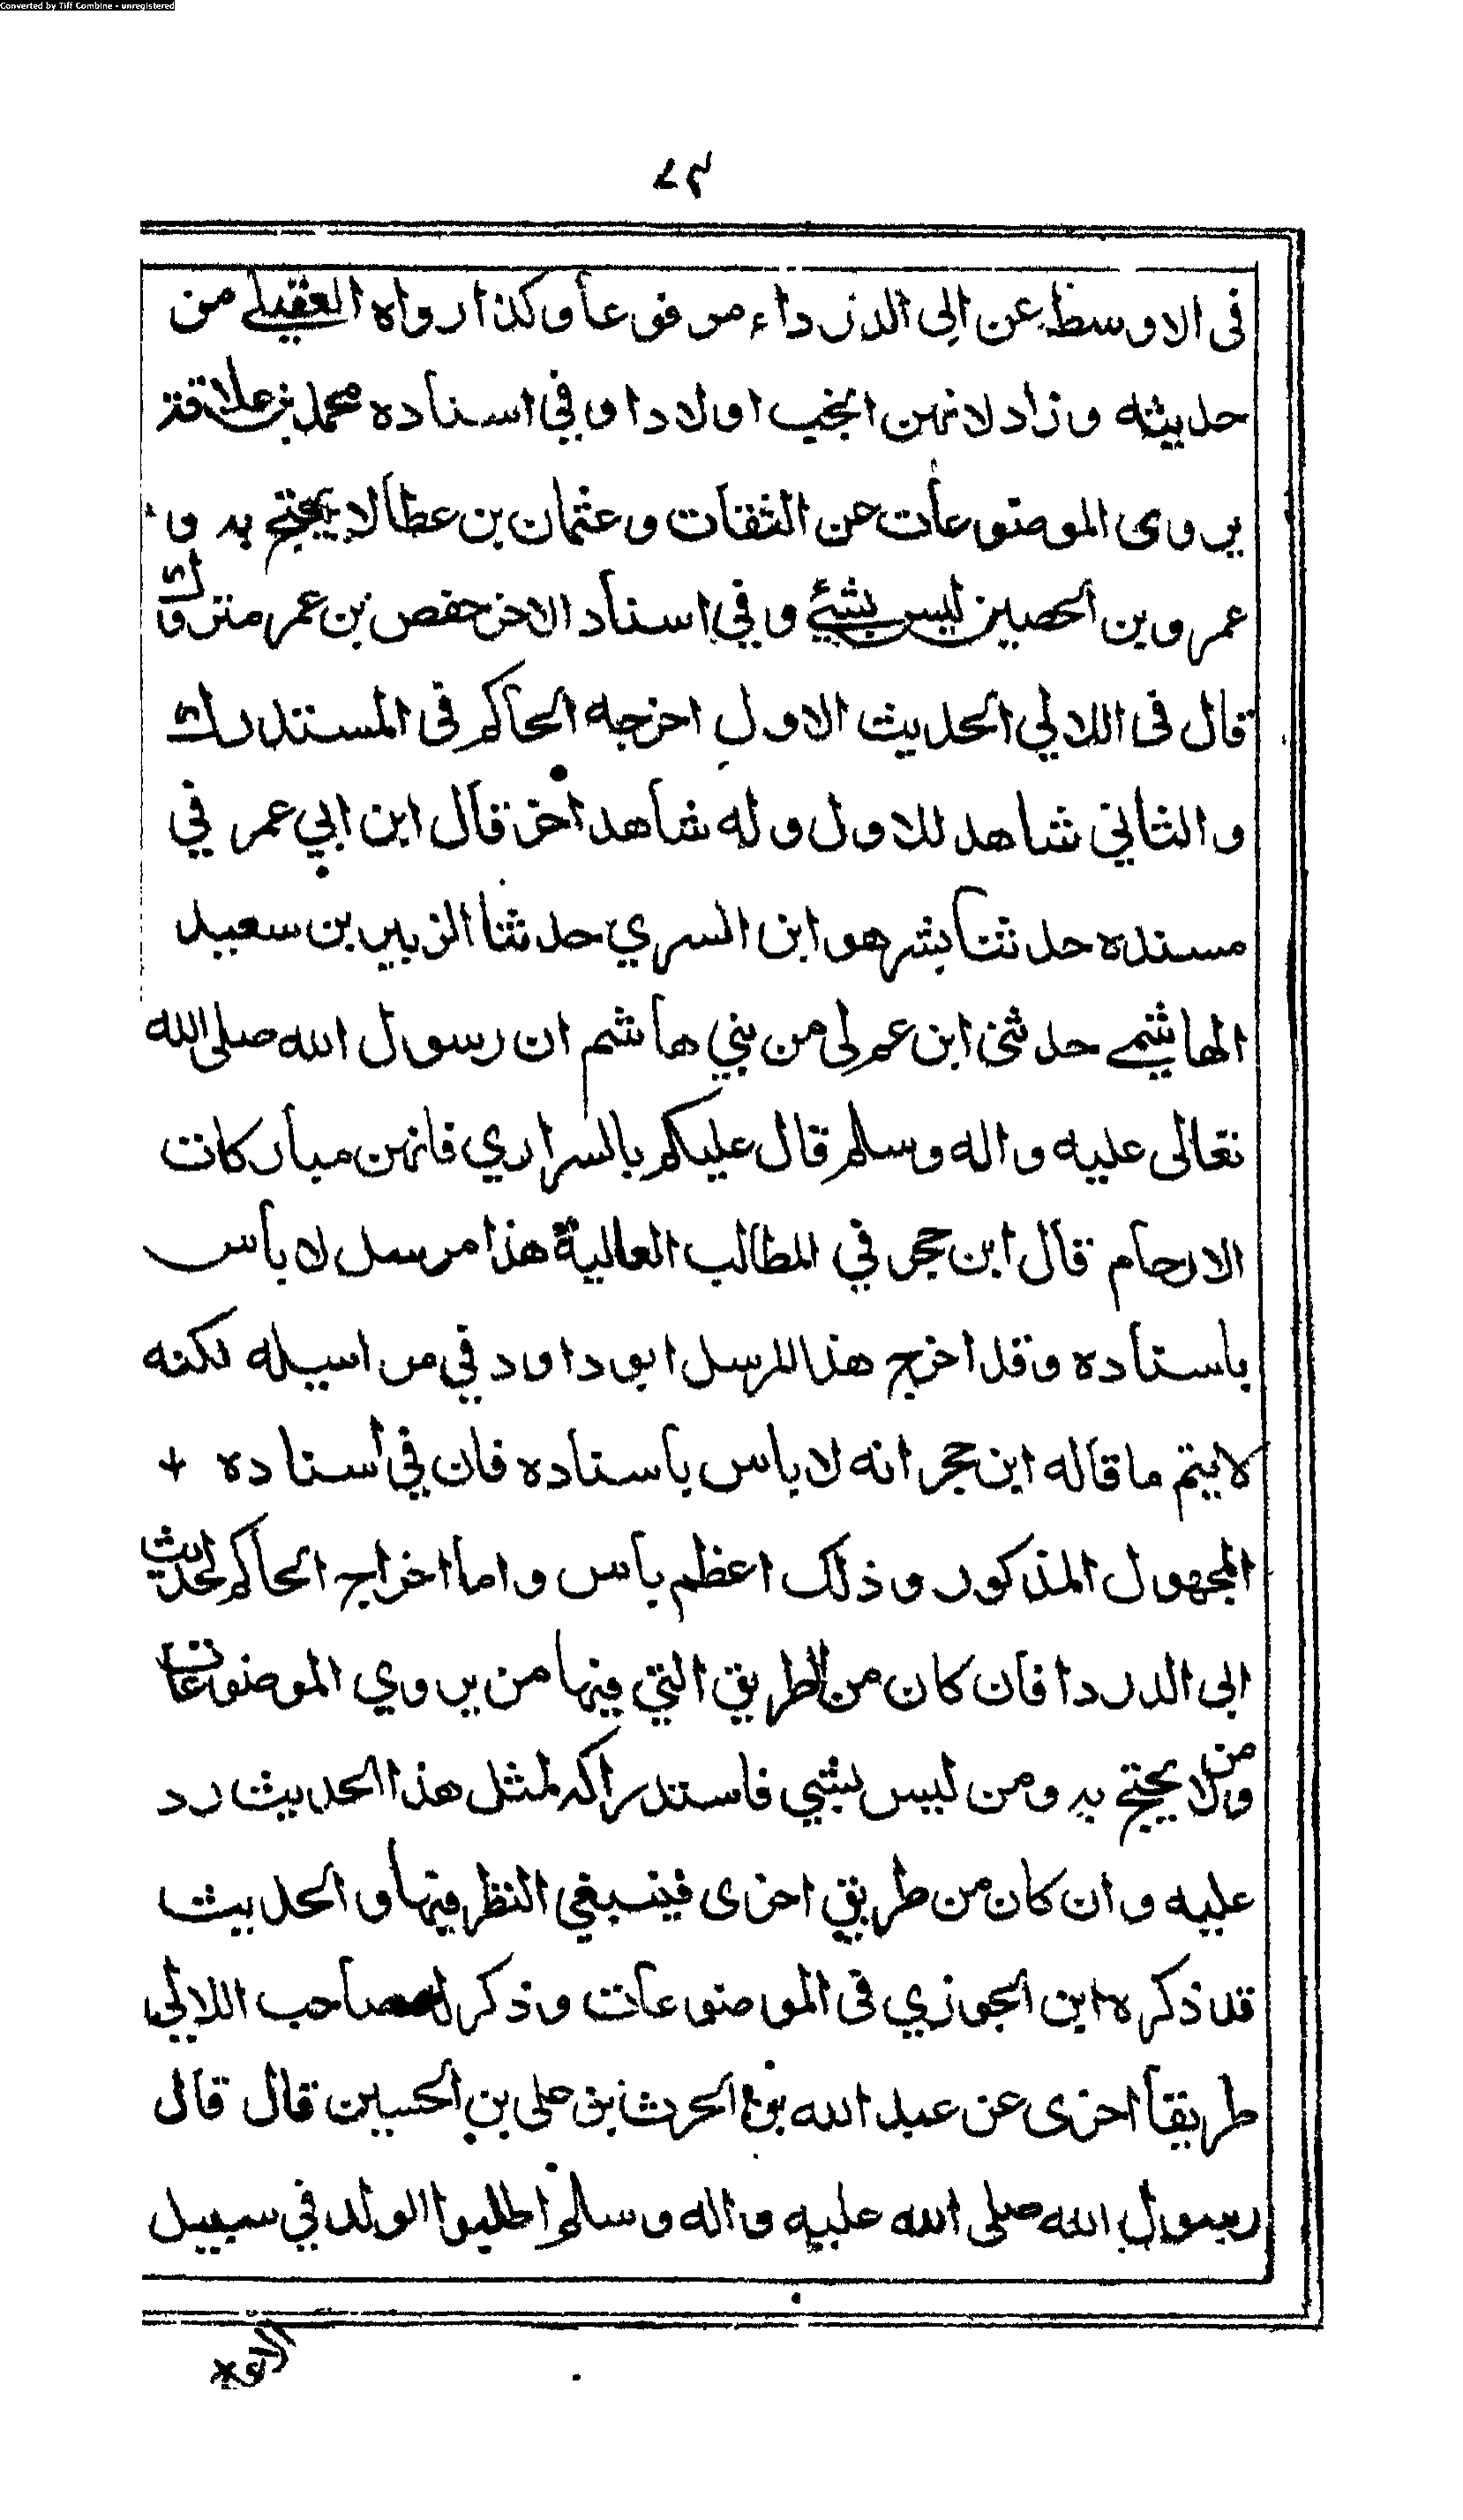 Converted by Tiff Combine - unregistered
فى الاوسط عن ابي الدرداء مرفوعا وكذا رواه العقيلي من
حديثه وزاد لانهن انجب اولادا وفي اسناده محمد بن علاقة
يروى الموضوعات عن الثقات وعثمان بن عطا لا يحتج به و
عمرو بن الحصين ليس بشيئ وفي اسناد الاخر حفص بن عمر متروك
قال فى اللالي الحديث الاول اخرجه الحاكم فى المستدرك
والثاني شاهد للاول وله شاهد آخر قال ابن ابي عمر في
مسنده حدثنا بشر هو ابن السري حدثنا الزبير بن سعيد
الهاشمي حدثنى ابن عم لى من بني هاشم ان رسول الله صلى الله
تعالى عليه واله وسلم قال عليكم بالسراري فانهن مباركات
الارحام قال ابن حجر في المطالب العالية هذا مرسل لا بأس
باسناده وقد اخرج هذا المرسل ابو داود في مراسيله لكنه
لا يتم ما قاله ابن حجر انه لا باس باسناده فان في اسناده +
المجهول المذكور وذلك اعظم باس واما اخراج الحاكم لحديث
ابى الدردا فان كان من الطريق التي فيها من يروي الموضوعات
ومن لا يحتج به ومن ليس بشيي فاستدراكه لمثل هذا الحديث رد
عليه وان كان من طريق اخرى فينبغي النظر فيها والحديث
قد ذكره ابن الجوزي فى الموضوعات وذكر له صاحب اللالي
طريقا اخرى عن عبد الله بن الحرث بن على بن الحسين قال قال
رسول الله صلى الله عليه واله وسلم اطلبوا الولد في سبيل